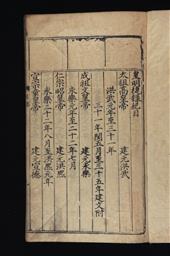 皇明從信錄總目
太祖高皇帝　建元洪武
洪武元年至三十年
三十一年閏五月至三十五年建文附
成祖文皇帝　建元永樂
永樂元年至二十二年七月
仁宗昭皇帝　建元洪熙
永樂二十二年八月至洪熙元年
宣宗章皇帝　建元宣德